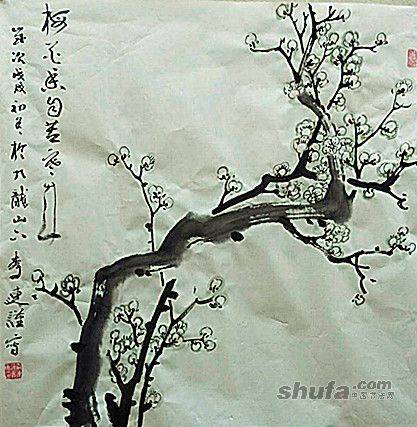 梅花香自苦寒来
岁次戊戌初於九龍山下李写
shufa.com
中国书法网